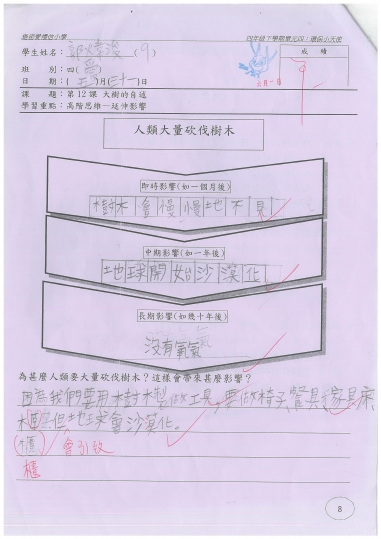 慈雲山禮信小學 四年級下學期單元四：環保小天使
學生姓名：郭煒浚(9) 成績
班別：四(愛)
日期：(五)月(三十一)日 六月一日
課題：第12課 大樹的自述
學習重點：高階思維—延伸影響
人類大量砍伐樹木
即時影響(如一個月後)
樹木會慢慢地不見
中期影響(如一年後)
地球開始沙漠化
長期影響(如幾十年後)
沒有氧氣
為甚麼人類要大量砍伐樹木？這樣會帶來甚麼影響？
因為我們要用樹木製做工具，要做椅子、餐具、家具、床、
木匱。但地球會沙漠化。
(櫃) 會引致
櫃
8